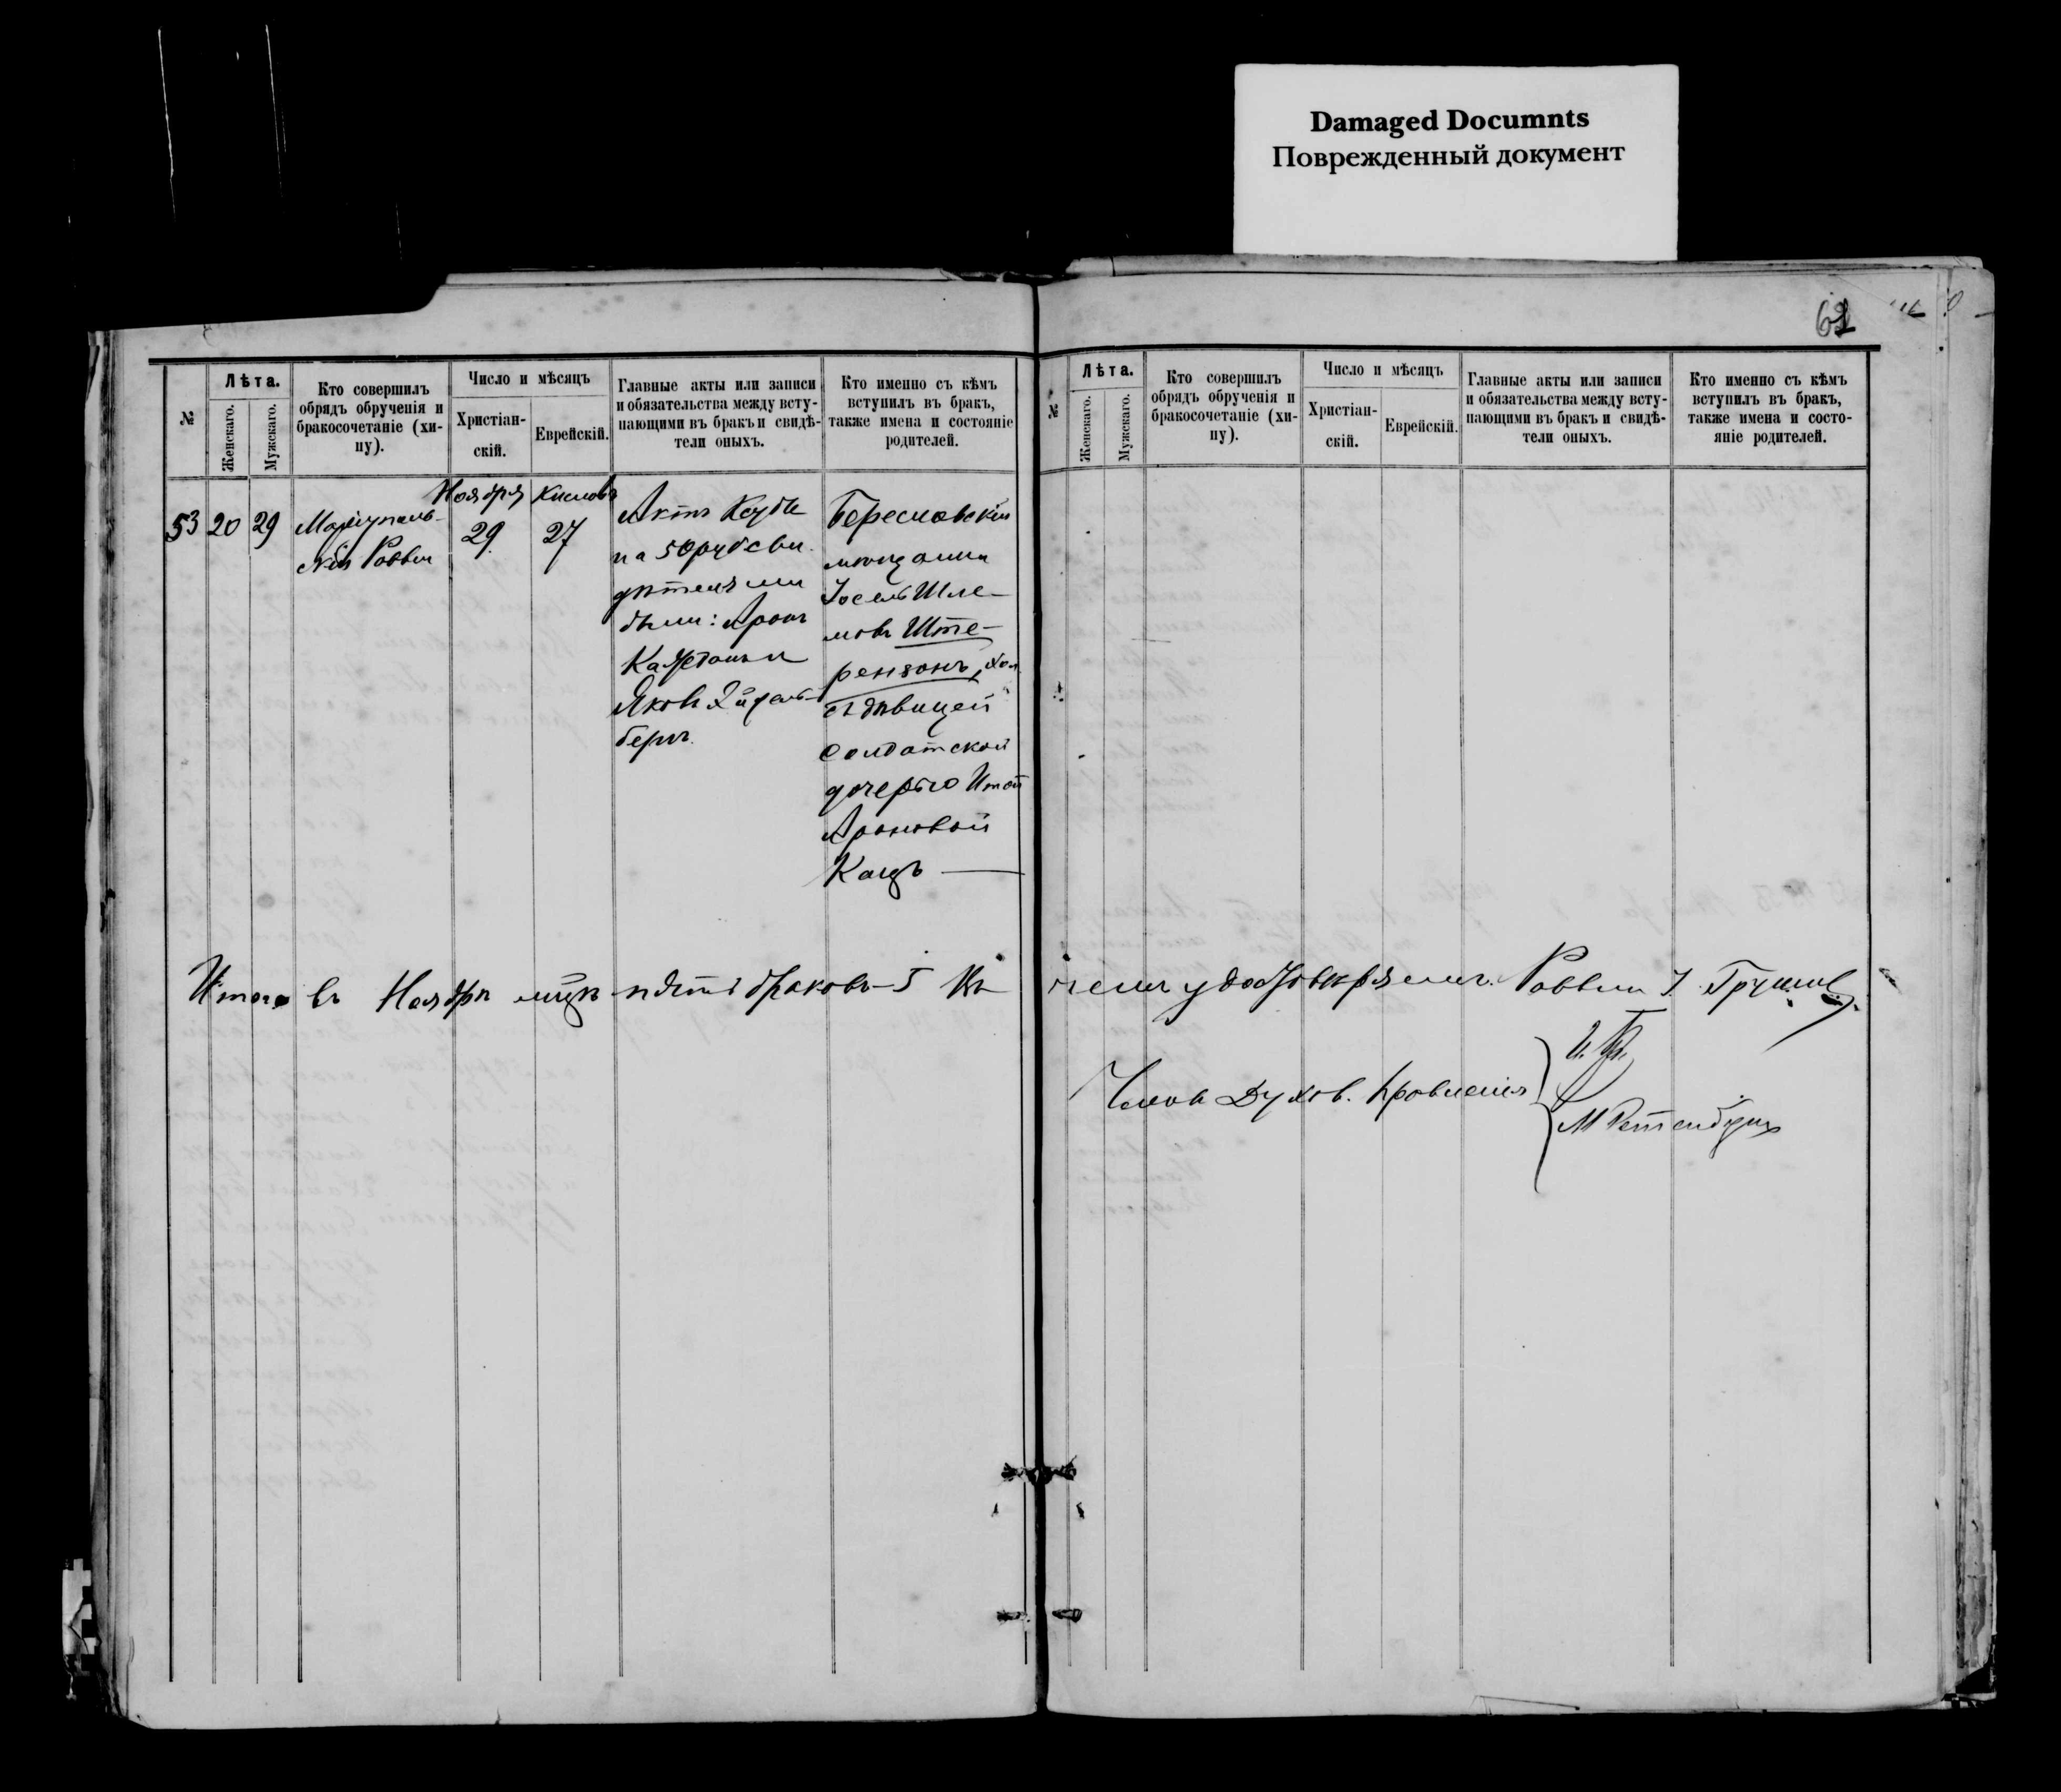 Damaged Documnts
Поврежденный документ
61
№
Лѣта.
Женскаго.
Мужскаго.
Кто совершилъ
обрядъ обрученія и
бракосочетаніе (хи-
пу).
Число и мѣсяцъ
Христіан-
скій.
Еврейскій.
Главные акты или записи
и обязательства между всту-
пающими въ бракъ и свидѣ-
тели оныхъ.
Кто именно съ кѣмъ
вступилъ въ бракъ,
также имена и состояніе
родителей.
53 20 29
Маріуполь-
скій Раввин
Ноября
29
Кислевъ
27
Актъ Ксубы
на 50 руб сви-
дѣтелями
были: Аронъ
Яковъ
бергъ.
Бериславскій
мѣщанинъ
Іосель Шле-
мовъ Ште-
рензонъ, хол.
съ дѣвицей
солдатской
дочерью Итой
Ароновой
Кацъ —
№
Лѣта.
Женскаго.
Мужскаго.
Кто совершилъ
обрядъ обрученія и
бракосочетаніе (хи-
пу).
Число и мѣсяцъ
Христіан-
скій.
Еврейскій.
Главные акты или записи
и обязательства между всту-
пающими въ бракъ и свидѣ-
тели оныхъ.
Кто именно съ кѣмъ
вступилъ въ бракъ,
также имена и состо-
яніе родителей.
Итого въ Ноябрѣ мцѣ пять браковъ – 5 Въ чемъ удостовѣряемъ. Раввин
Члены Духов. Правленія